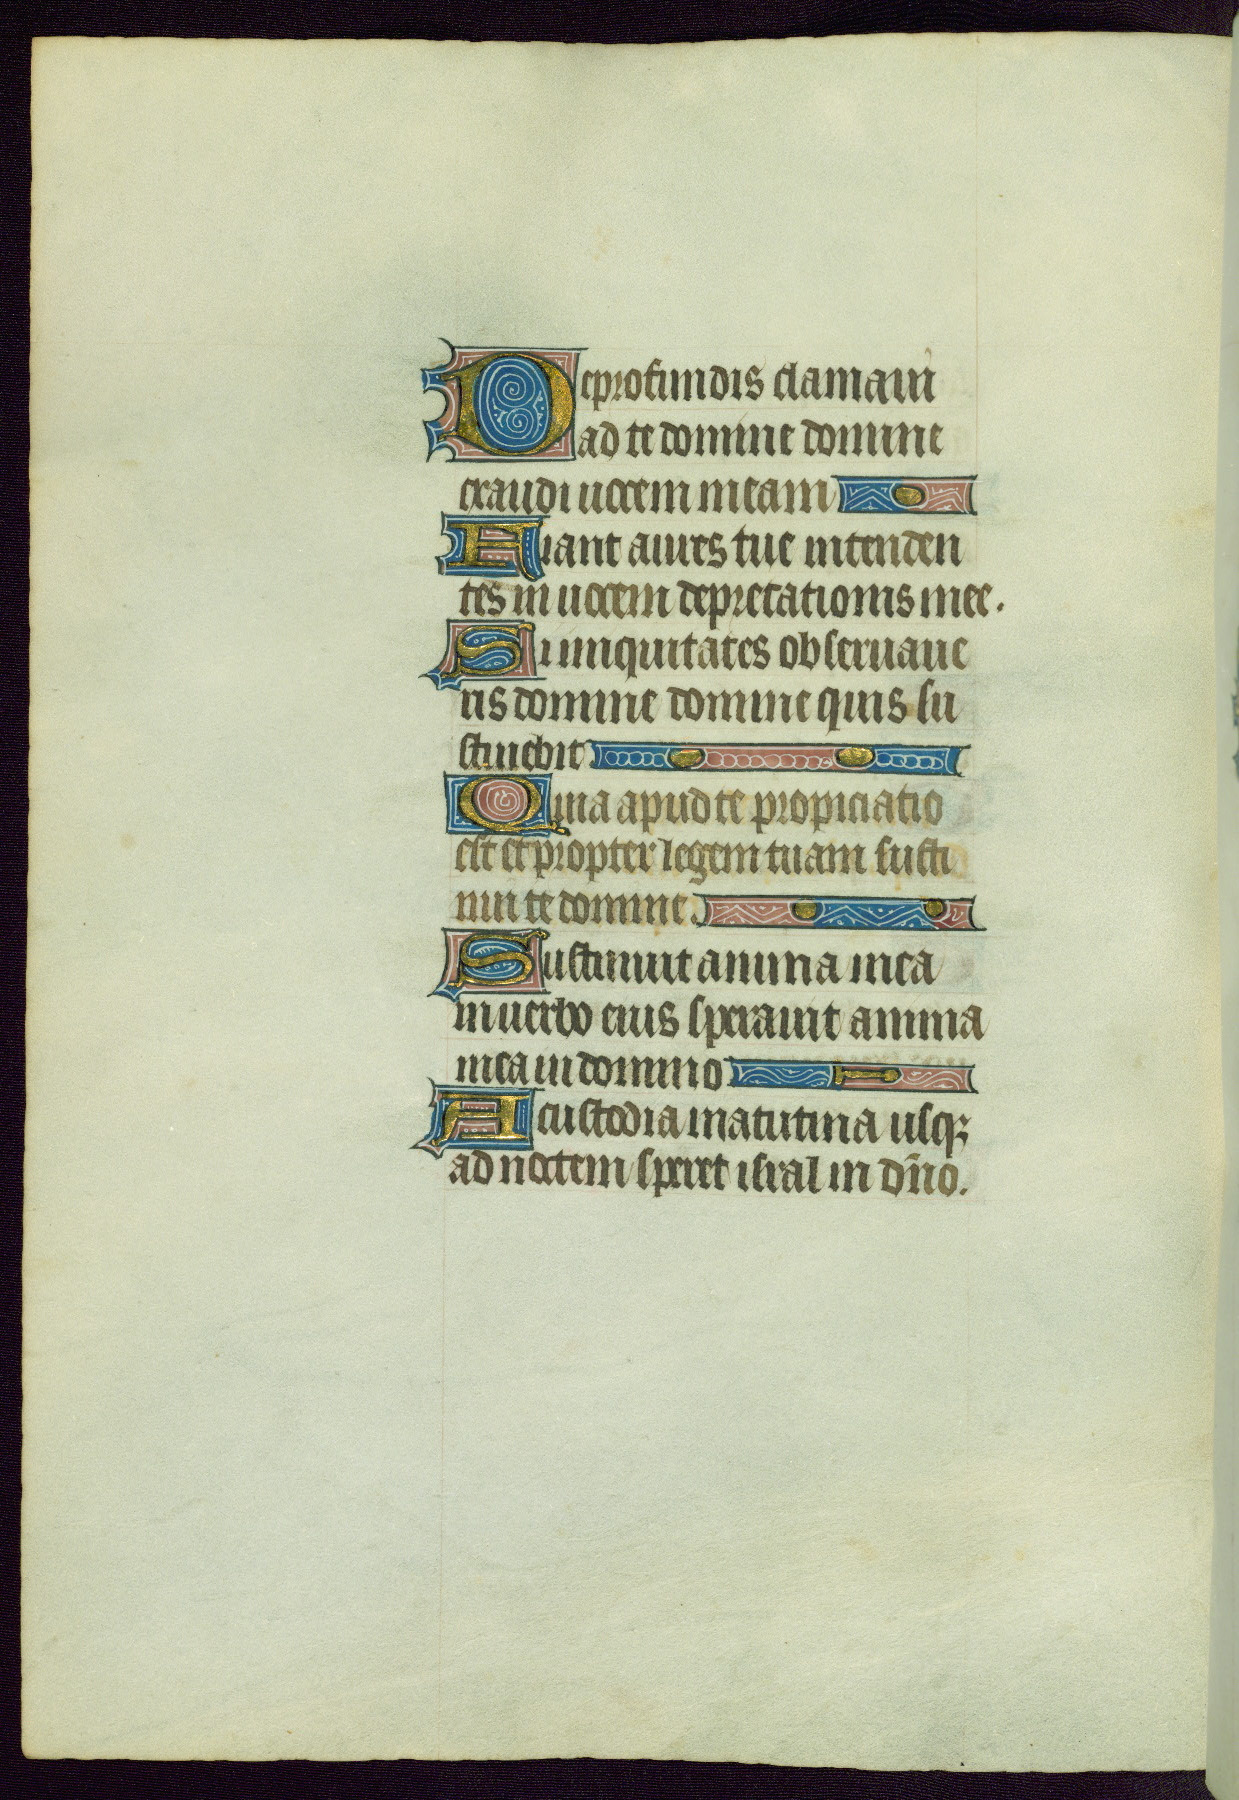 De profundis clamaui
ad te domine domine
exaudi uocem meam
Fiant aures tue intenden
tes in uocem deprecationis mee.
Si iniquitates obseruaue
ris domine domine quis su
stinebit
Quia apud te propiciatio
est et propter legem tuam susti
nui te domine.
Sustinuit anima mea
in uerbo eius sperauit anima
mea in domino
A custodia matutina usqꝫ
ad noctem speret isral in dño.